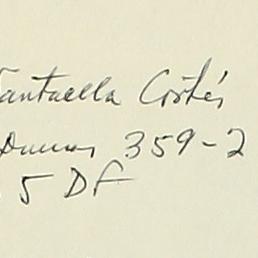 Cortés
Dumas 359-2
5 DF